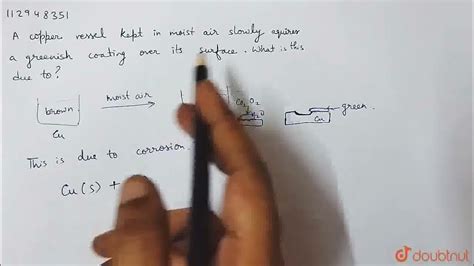 11294 8351
A copper vessel kept in moist air slowly aquires
a greenish coating over its surface. What is this
due to?
brown
Cu
moist air
CO₂ O₂
H₂O
Cu
green.
This is due to corrosion.
Cu(s) +
doubtnut